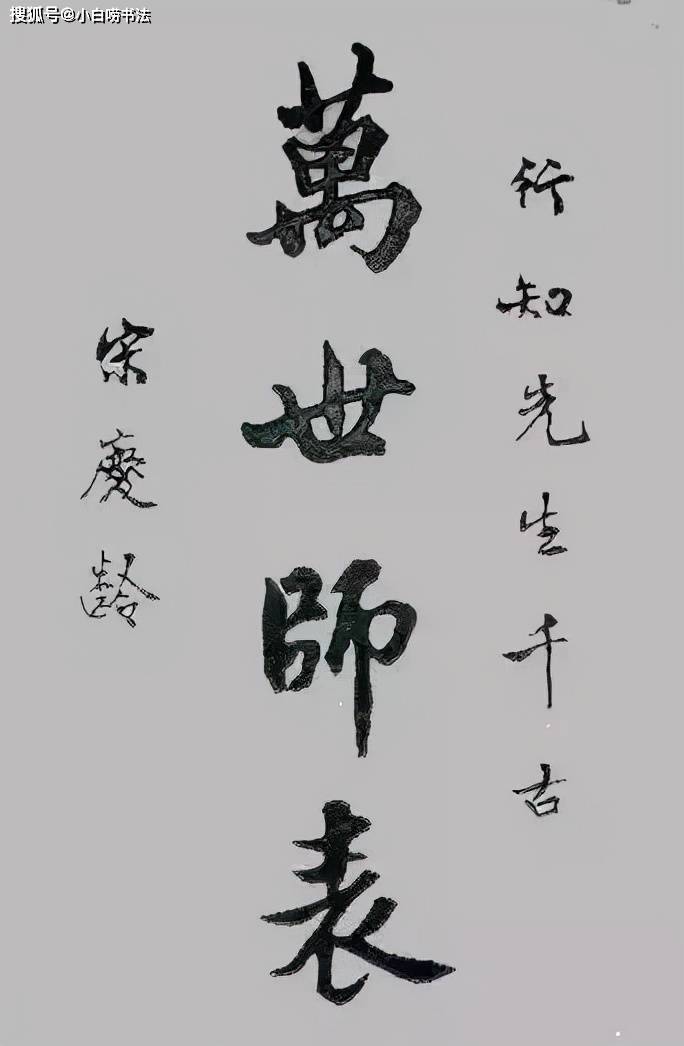 搜狐号@小白唠书法
行知先生千古
萬世師表
宋慶齡